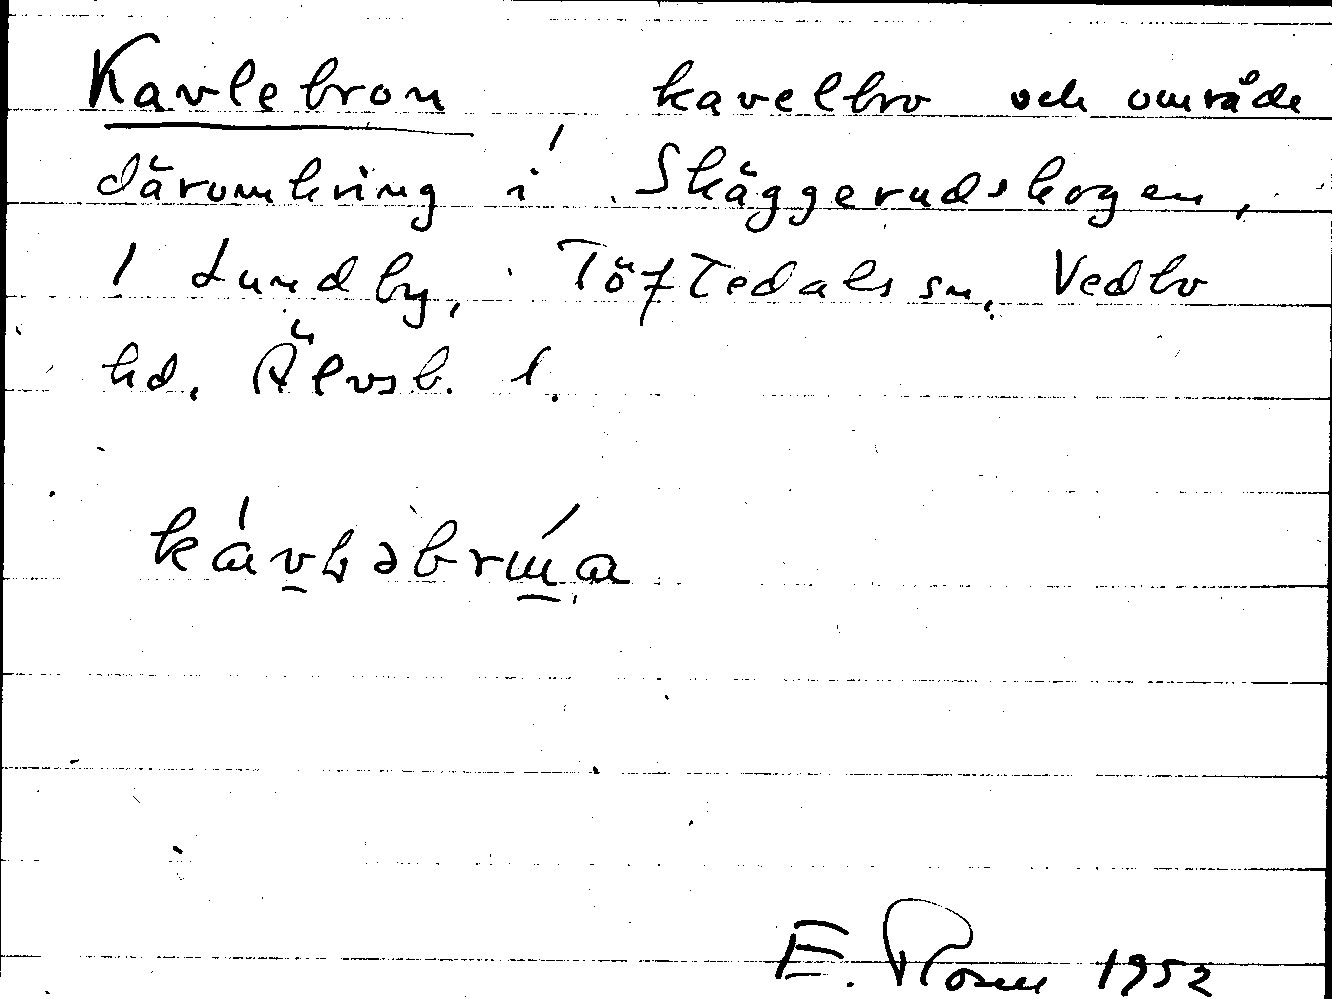 Kavlebron kavelbro och område
däromkring i Skäggerudskogen,
1 Lundby, Töftedals sn, Vedbo
hd, Älvsb. l.
E. Rosén 1952